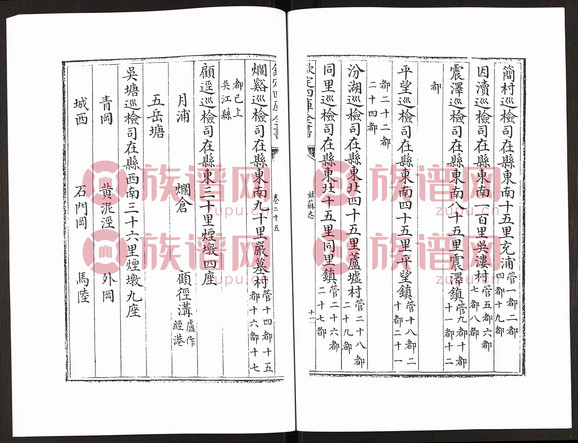 簡村廵檢司在縣東南十五里充浦管一都二都四都
因瀆廵檢司在縣東南一百里吳漊村管五都六都七都八都
震澤廵檢司在縣東南八十五里震澤鎮管九都十都十一都十二
都
平望廵檢司在縣東南四十五里平望鎮管十八都二十都二十一
都二十二都二十四都
汾湖廵檢司在縣東北四十五里蘆墟村管二十八都二十九都
同里廵檢司在縣東北十五里同里鎮管二十六都二十七
欽定四庫全書
姑蘇志
十一
欽定四庫全書
卷二十五
爛谿廵檢司在縣東南九十里嚴墓村管十四都十五都十六都十七
都已上吳江縣
顧逕廵檢司在縣東三十里煙墩四座
月浦
爛倉
顧徑溝虛作經港
五岳塘
吳塘廵檢司在縣西南三十六里煙墩九座
青岡
黄泥涇
外岡
城西
石門岡
馬陸
族谱网
zupu.cn